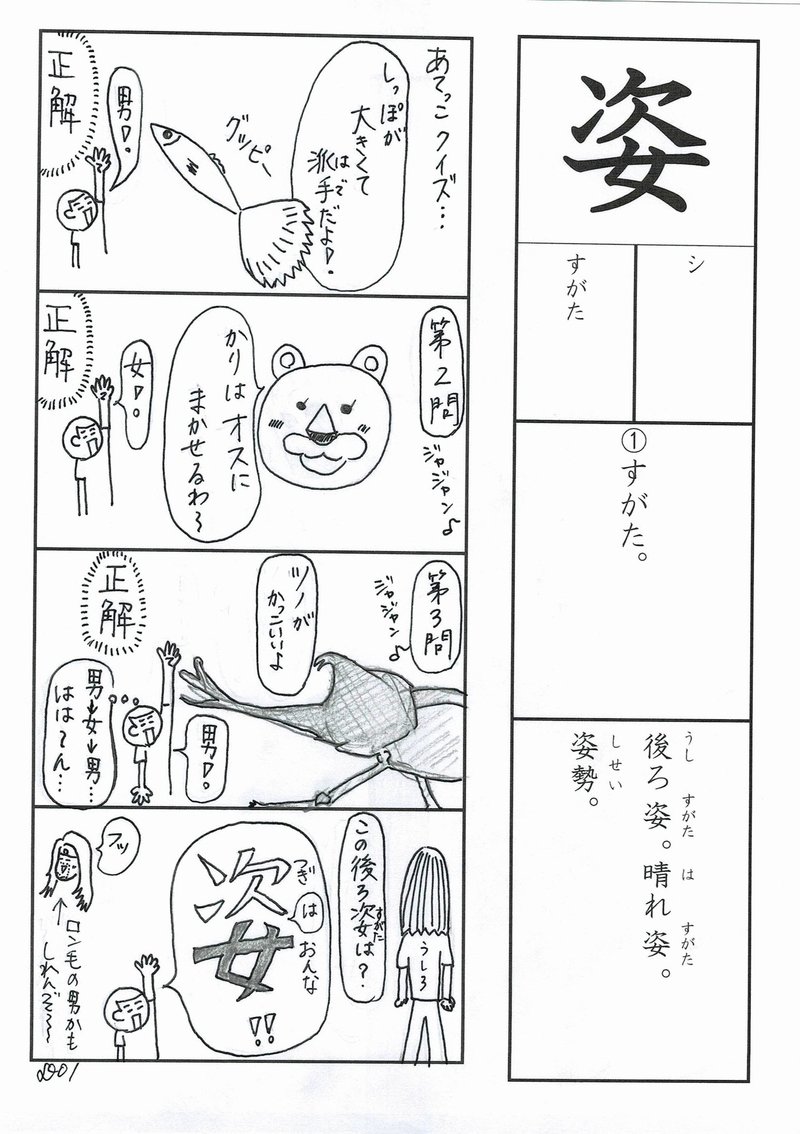 姿
シ
すがた
①すがた。
うし すがた は すがた
後ろ姿。晴れ姿。
しせい
姿勢。
あてっこクイズ…
しっぽが
大きくて
はで
派手だよ!。
グッピー
男!。
正解
第2問
ジャジャン♪
かりはオスに
まかせるわ〜
女!。
正解
第3問
ジャジャン♪
ツノが
かっこいいよ
男!。
正解
男→女→男…
はは〜ん…
うしろ
すがた
この後ろ姿は?
つぎ
は
おんな
姿
!!
フッ
↑
ロン毛の男かも
しれんぞ〜〜